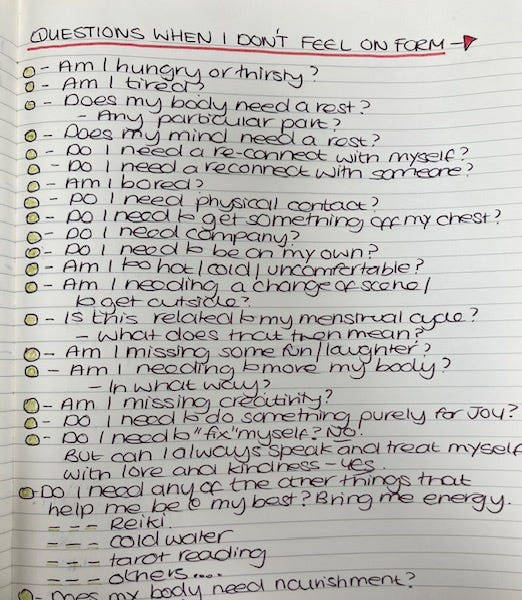 QUESTIONS WHEN I DON'T FEEL ON FORM
- Am I hungry or thirsty?
- Am I tired?
- Does my body need a rest?
- Any particular part?
- Does my mind need a rest?
- Do I need a re-connect with myself?
- Do I need a reconnect with someone?
- Am I bored?
- Do I need physical contact?
- Do I need to get something off my chest?
- Do I need company?
- Do I need to be on my own?
- Am I too hot / cold / uncomfortable?
- Am I needing a change of scene /
to get outside?
- Is this related to my menstrual cycle?
- What does that then mean?
- Am I missing some fun / laughter?
- Am I needing to move my body?
- In what way?
- Am I missing creativity?
- Do I need to do something purely for JOY?
- Do I need to "fix" myself? NO.
But can I always speak and treat myself
with love and kindness - yes.
Do I need any of the other things that
help me be @ my best? Bring me energy.
--- Reiki
--- cold water
--- tarot reading
--- others....
- Does my body need nourishment?